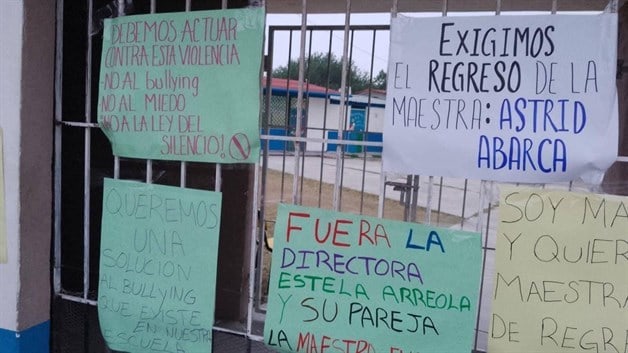 DEBEMOS ACTUAR
CONTRA ESTA VIOLENCIA
-NO AL bullying
NO AL MIEDO
NO A LA LEY DEL
SILENCIO!
EXIGIMOS
EL REGRESO DE LA
MAESTRA: ASTRID
ABARCA
QUEREMOS
UNA
SOLUCION
AL BULLYING
QUE EXISTE
EN NUESTRA
ESCUELA
FUERA LA
DIRECTORA
ESTELA ARREOLA
Y SU PAREJA
LA MAESTRA
SOY
Y QUIER
MAESTRA
DE REGR